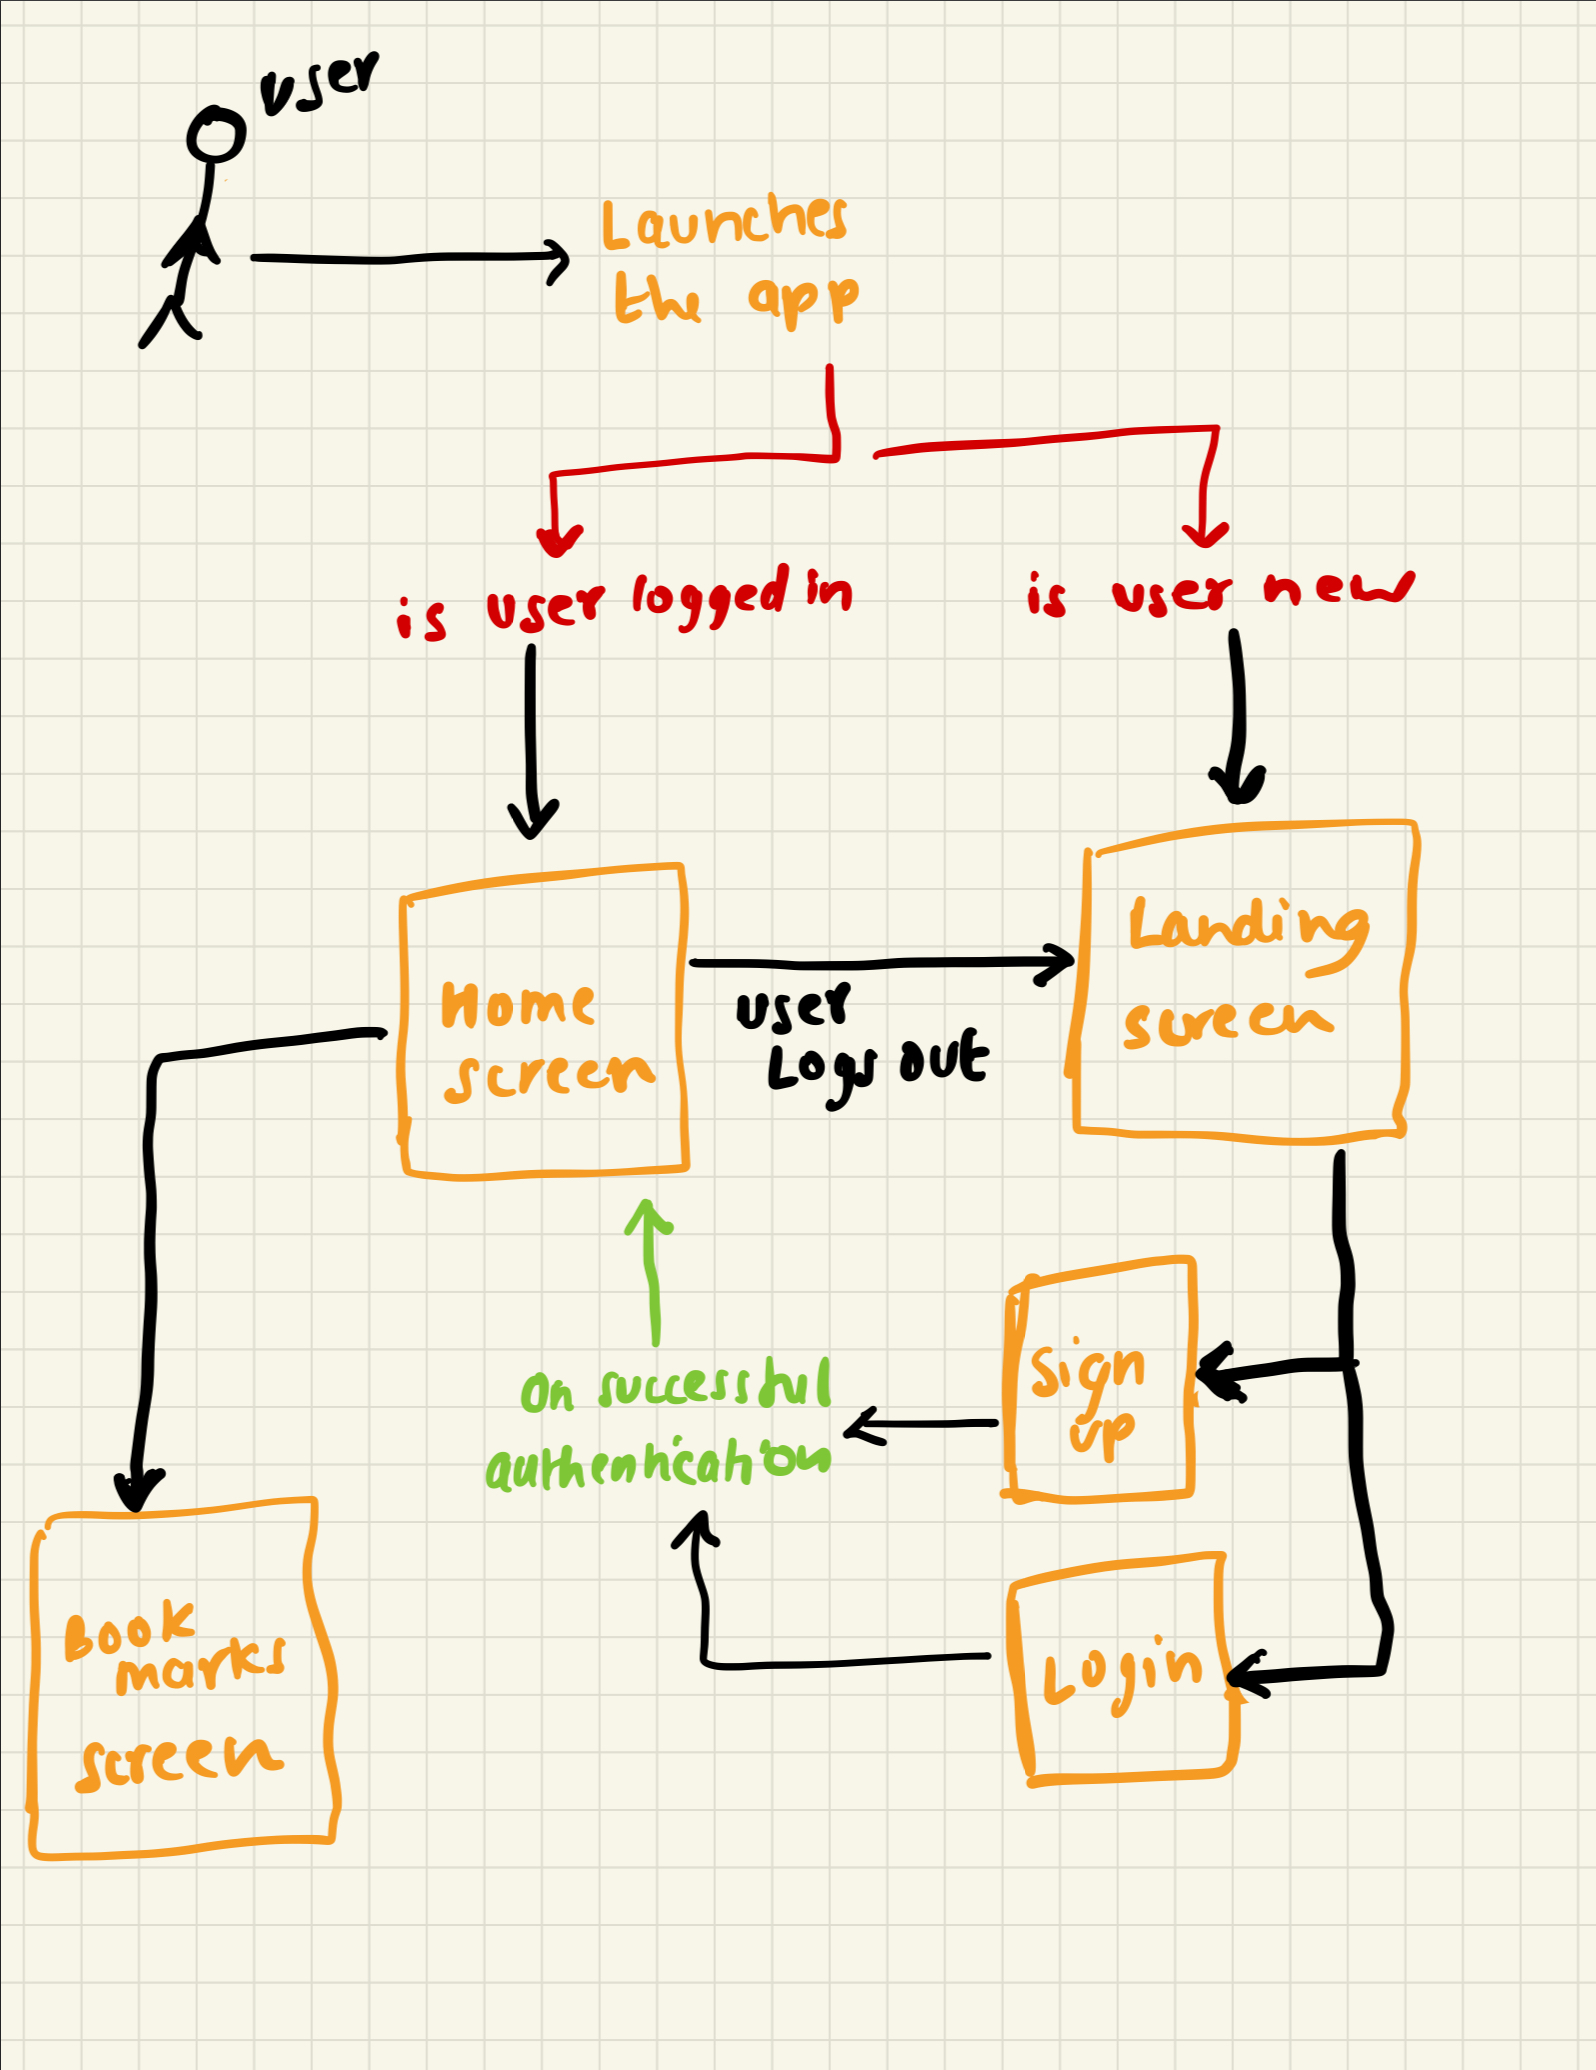 user
Launches
the app
is user logged in
is user new
Home
screen
user
Logs out
Landing
screen
on successful
authentication
Sign
up
Book
marks
screen
Login